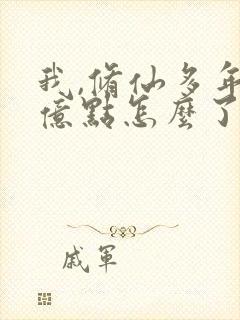 我,脩仙多年強
億點怎麼了
戚軍